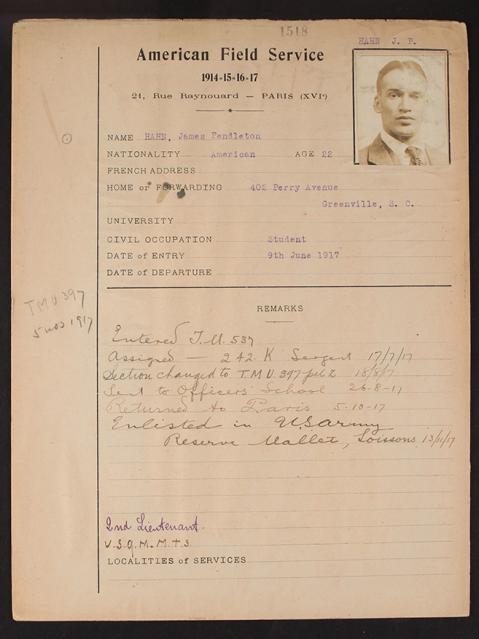 1518
HAHN J. P.
American Field Service
1914-15-16-17
21, Rue Raynouard — PARIS (XVIe)
NAME HAHN, James Pendleton
NATIONALITY American AGE 22
FRENCH ADDRESS
HOME or FORWARDING 402 Perry Avenue
Greenville, S. C.
UNIVERSITY
CIVIL OCCUPATION Student
DATE of ENTRY 9th June 1917
DATE of DEPARTURE
TMU 397
5 nov 1917
REMARKS
Entered T.U. 537
Assigned — 242 K Sergent 17/7/17
Section changed to T.M.U. 397 18/8/17
Sent to Officers' School 26-8-17
Returned to Paris 5-10-17
Enlisted in U.S. army
Reserve Mallet, Soissons 13/11/17
2nd Lieutenant
U.S.Q.M.M.T.S
LOCALITIES of SERVICES